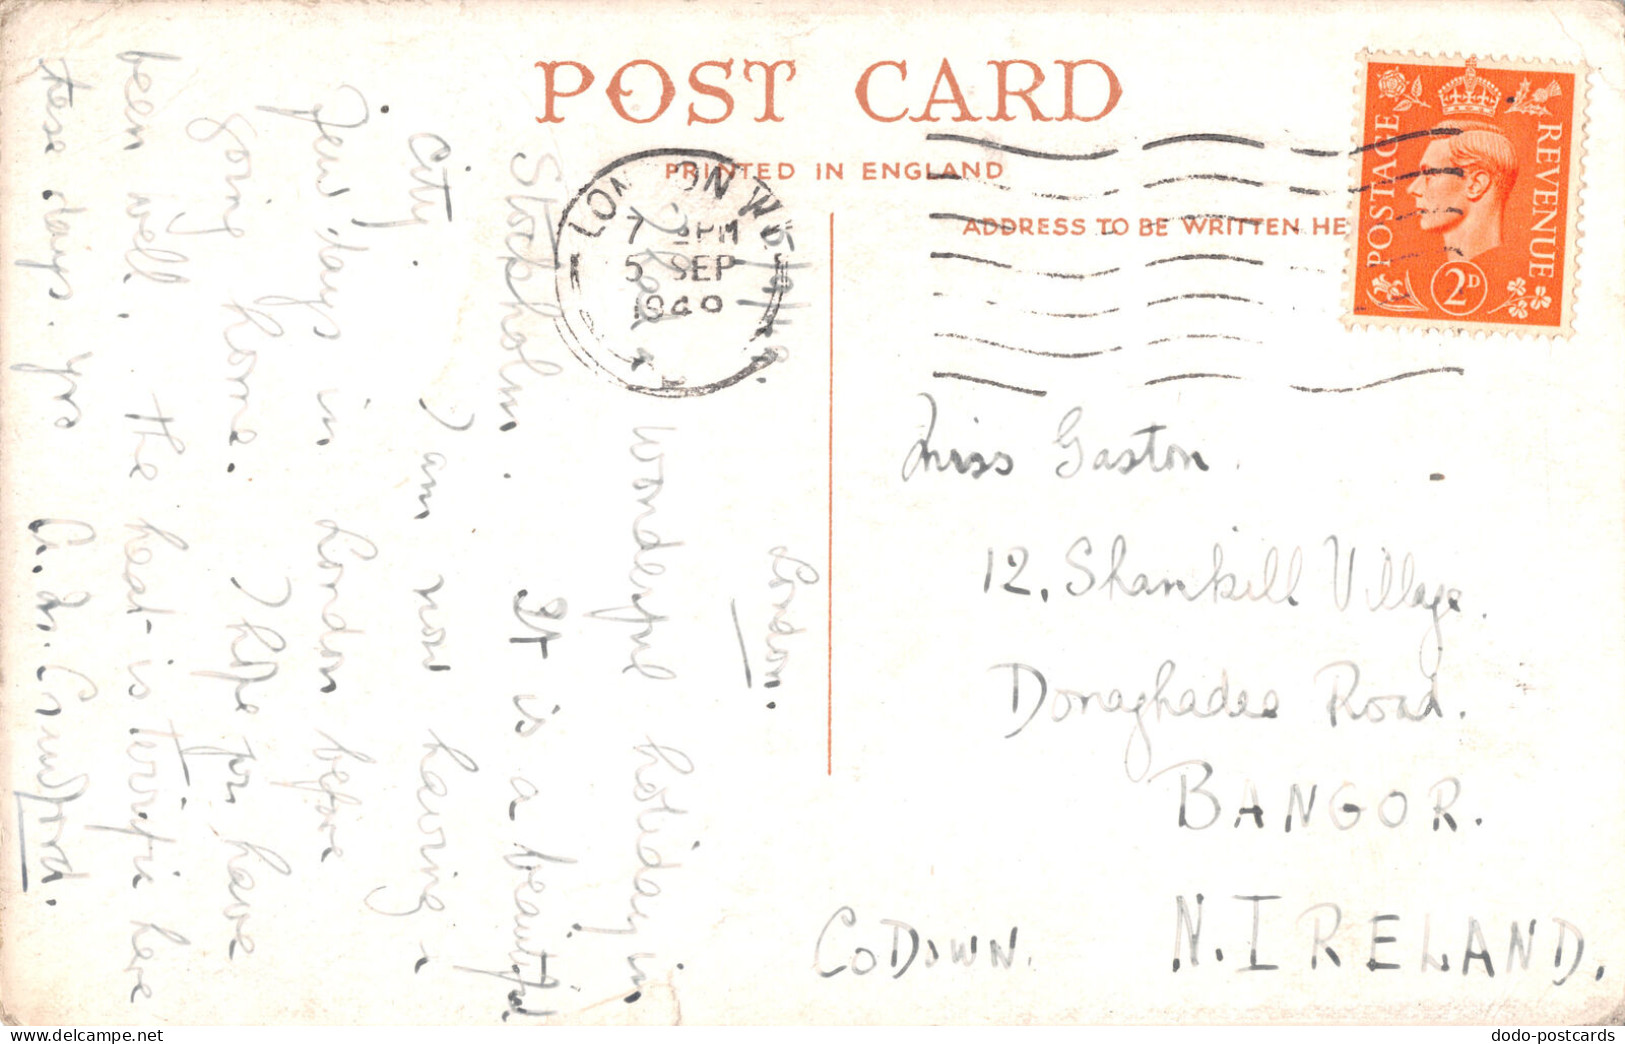 POST CARD
PRINTED IN ENGLAND
ADDRESS TO BE WRITTEN HE
POSTAGE
REVENUE
2D
LONDON W
7 PM
5 SEP
1949
London.
5/9/49.
I had a wonderful holiday in
Stockholm. It is a beautiful
city. I am now having a
few days in London before
going home. I hope you have
been well. The heat is terrific here
these days. Yrs
Crawford.
Miss Gaston.
12, Shankill Village.
Donaghadee Road.
BANGOR.
Co DOWN.
N. IRELAND.
dodo-postcards